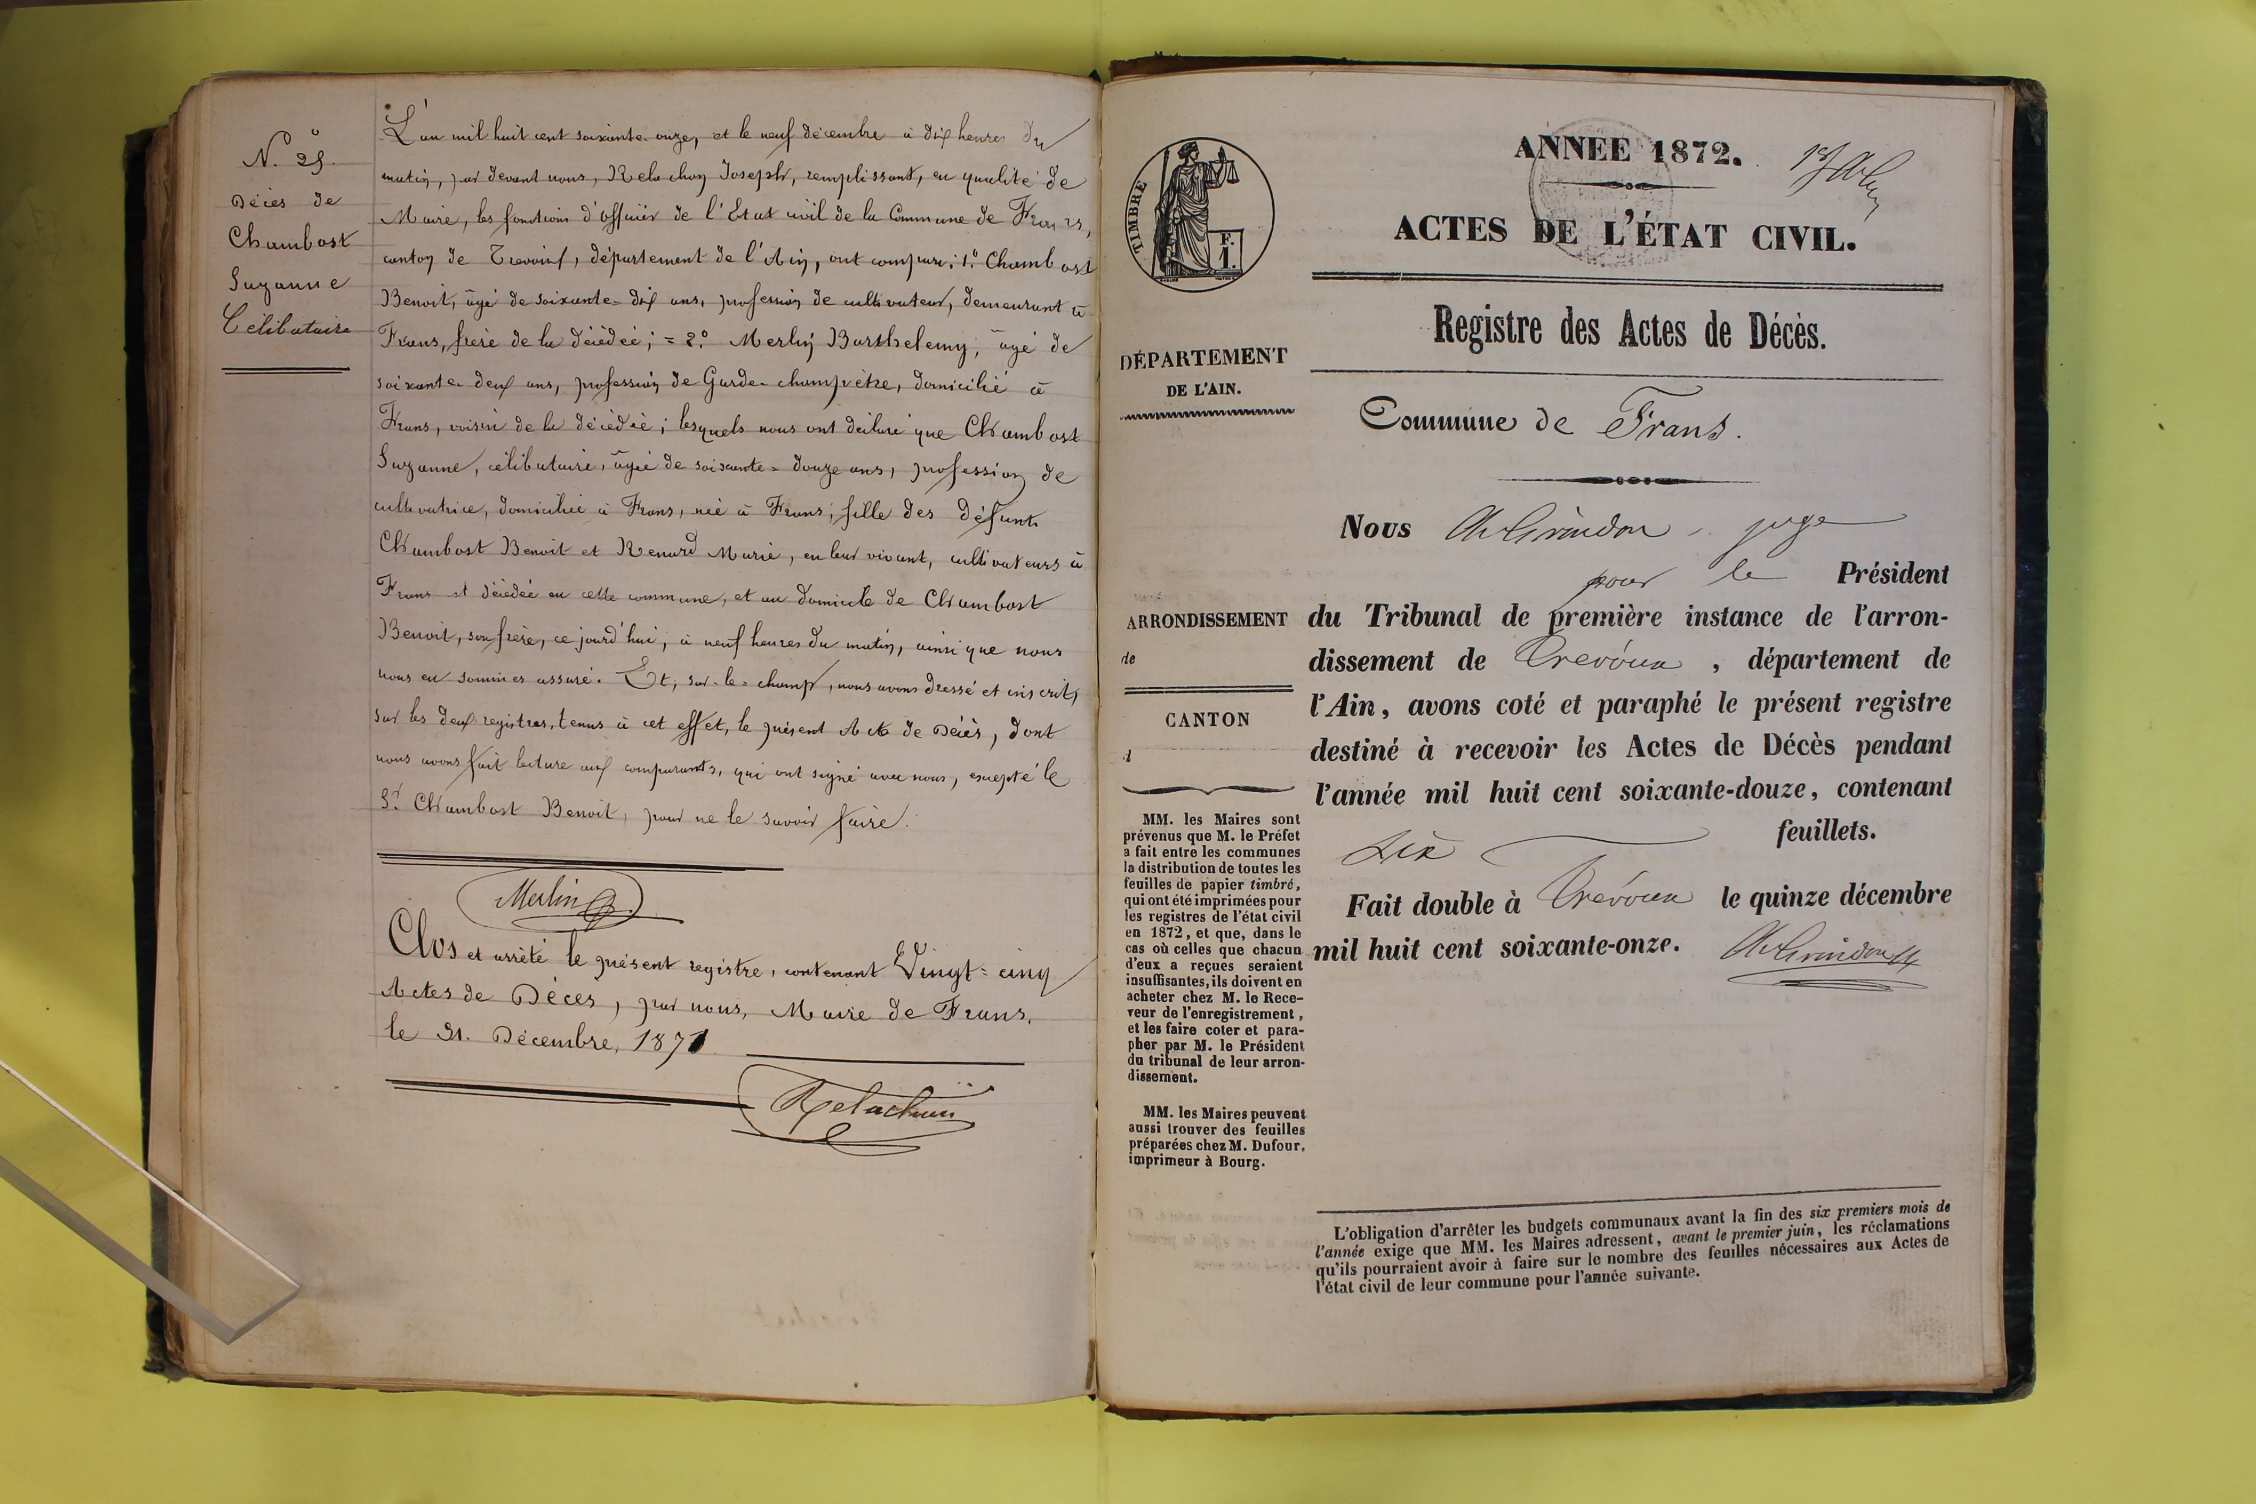 N.° 25
Décès de
Chambost
Suzanne
Célibataire
L'an mil huit cent soixante-onze, et le neuf décembre à dix heures du
matin, par devant nous, Relachon Joseph, remplissant, en qualité de
Maire, les fonctions d'officier de l'Etat civil de la Commune de Frans,
canton de Trévoux, département de l'Ain, ont comparu: 1.° Chambost
Benoit, âgé de soixante-dix ans, profession de cultivateur, demeurant à
Frans, frère de la décédée; = 2.° Merlin Barthelemy, âgé de
soixante-deux ans, profession de Garde-champêtre, domicilié à
Frans, voisin de la décédée; lesquels nous ont déclaré que Chambost
Suzanne, célibataire, âgée de soixante-douze ans, profession de
cultivatrice, domiciliée à Frans, née à Frans; fille des défunts
Chambost Benoit et Renard Marie, en leur vivant, cultivateurs à
Frans est décédée en cette commune, et au domicile de Chambost
Benoit, son frère, ce jourd'hui, à neuf heures du matin, ainsi que nous
nous en sommes assuré. Et, sur-le-champ, nous avons dressé et inscrit,
sur les deux registres, tenus à cet effet, le présent Acte de Décès, dont
nous avons fait lecture aux comparants, qui ont signé avec nous, excepté le
S.r Chambost Benoit, pour ne le savoir faire.
Merlin B.
Clos et arrêté le présent registre, contenant Vingt-cinq
Actes de Décès, par nous, Maire de Frans,
le 31. Décembre, 1871
Relachon
TIMBRE
F.
1.
DÉPARTEMENT
DE L'AIN.
ARRONDISSEMENT
de
CANTON
d
MM. les Maires sont
prévenus que M. le Préfet
a fait entre les communes
la distribution de toutes les
feuilles de papier timbré,
qui ont été imprimées pour
les registres de l'état civil
en 1872, et que, dans le
cas où celles que chacun
d'eux a reçues seraient
insuffisantes, ils doivent en
acheter chez M. le Rece-
veur de l'enregistrement,
et les faire coter et para-
pher par M. le Président
du tribunal de leur arron-
dissement.
MM. les Maires peuvent
aussi trouver des feuilles
préparées chez M. Dufour,
imprimeur à Bourg.
ANNÉE 1872.
ACTES DE L'ÉTAT CIVIL.
Registre des Actes de Décès.
Commune de Frans.
Nous juge
pour le Président
du Tribunal de première instance de l'arron-
dissement de Trévoux, département de
l'Ain, avons coté et paraphé le présent registre
destiné à recevoir les Actes de Décès pendant
l'année mil huit cent soixante-douze, contenant
feuillets.
Fait double à Trévoux le quinze décembre
mil huit cent soixante-onze.
L'obligation d'arrêter les budgets communaux avant la fin des six premiers mois de
l'année exige que MM. les Maires adressent, avant le premier juin, les réclamations
qu'ils pourraient avoir à faire sur le nombre des feuilles nécessaires aux Actes de
l'état civil de leur commune pour l'année suivante.